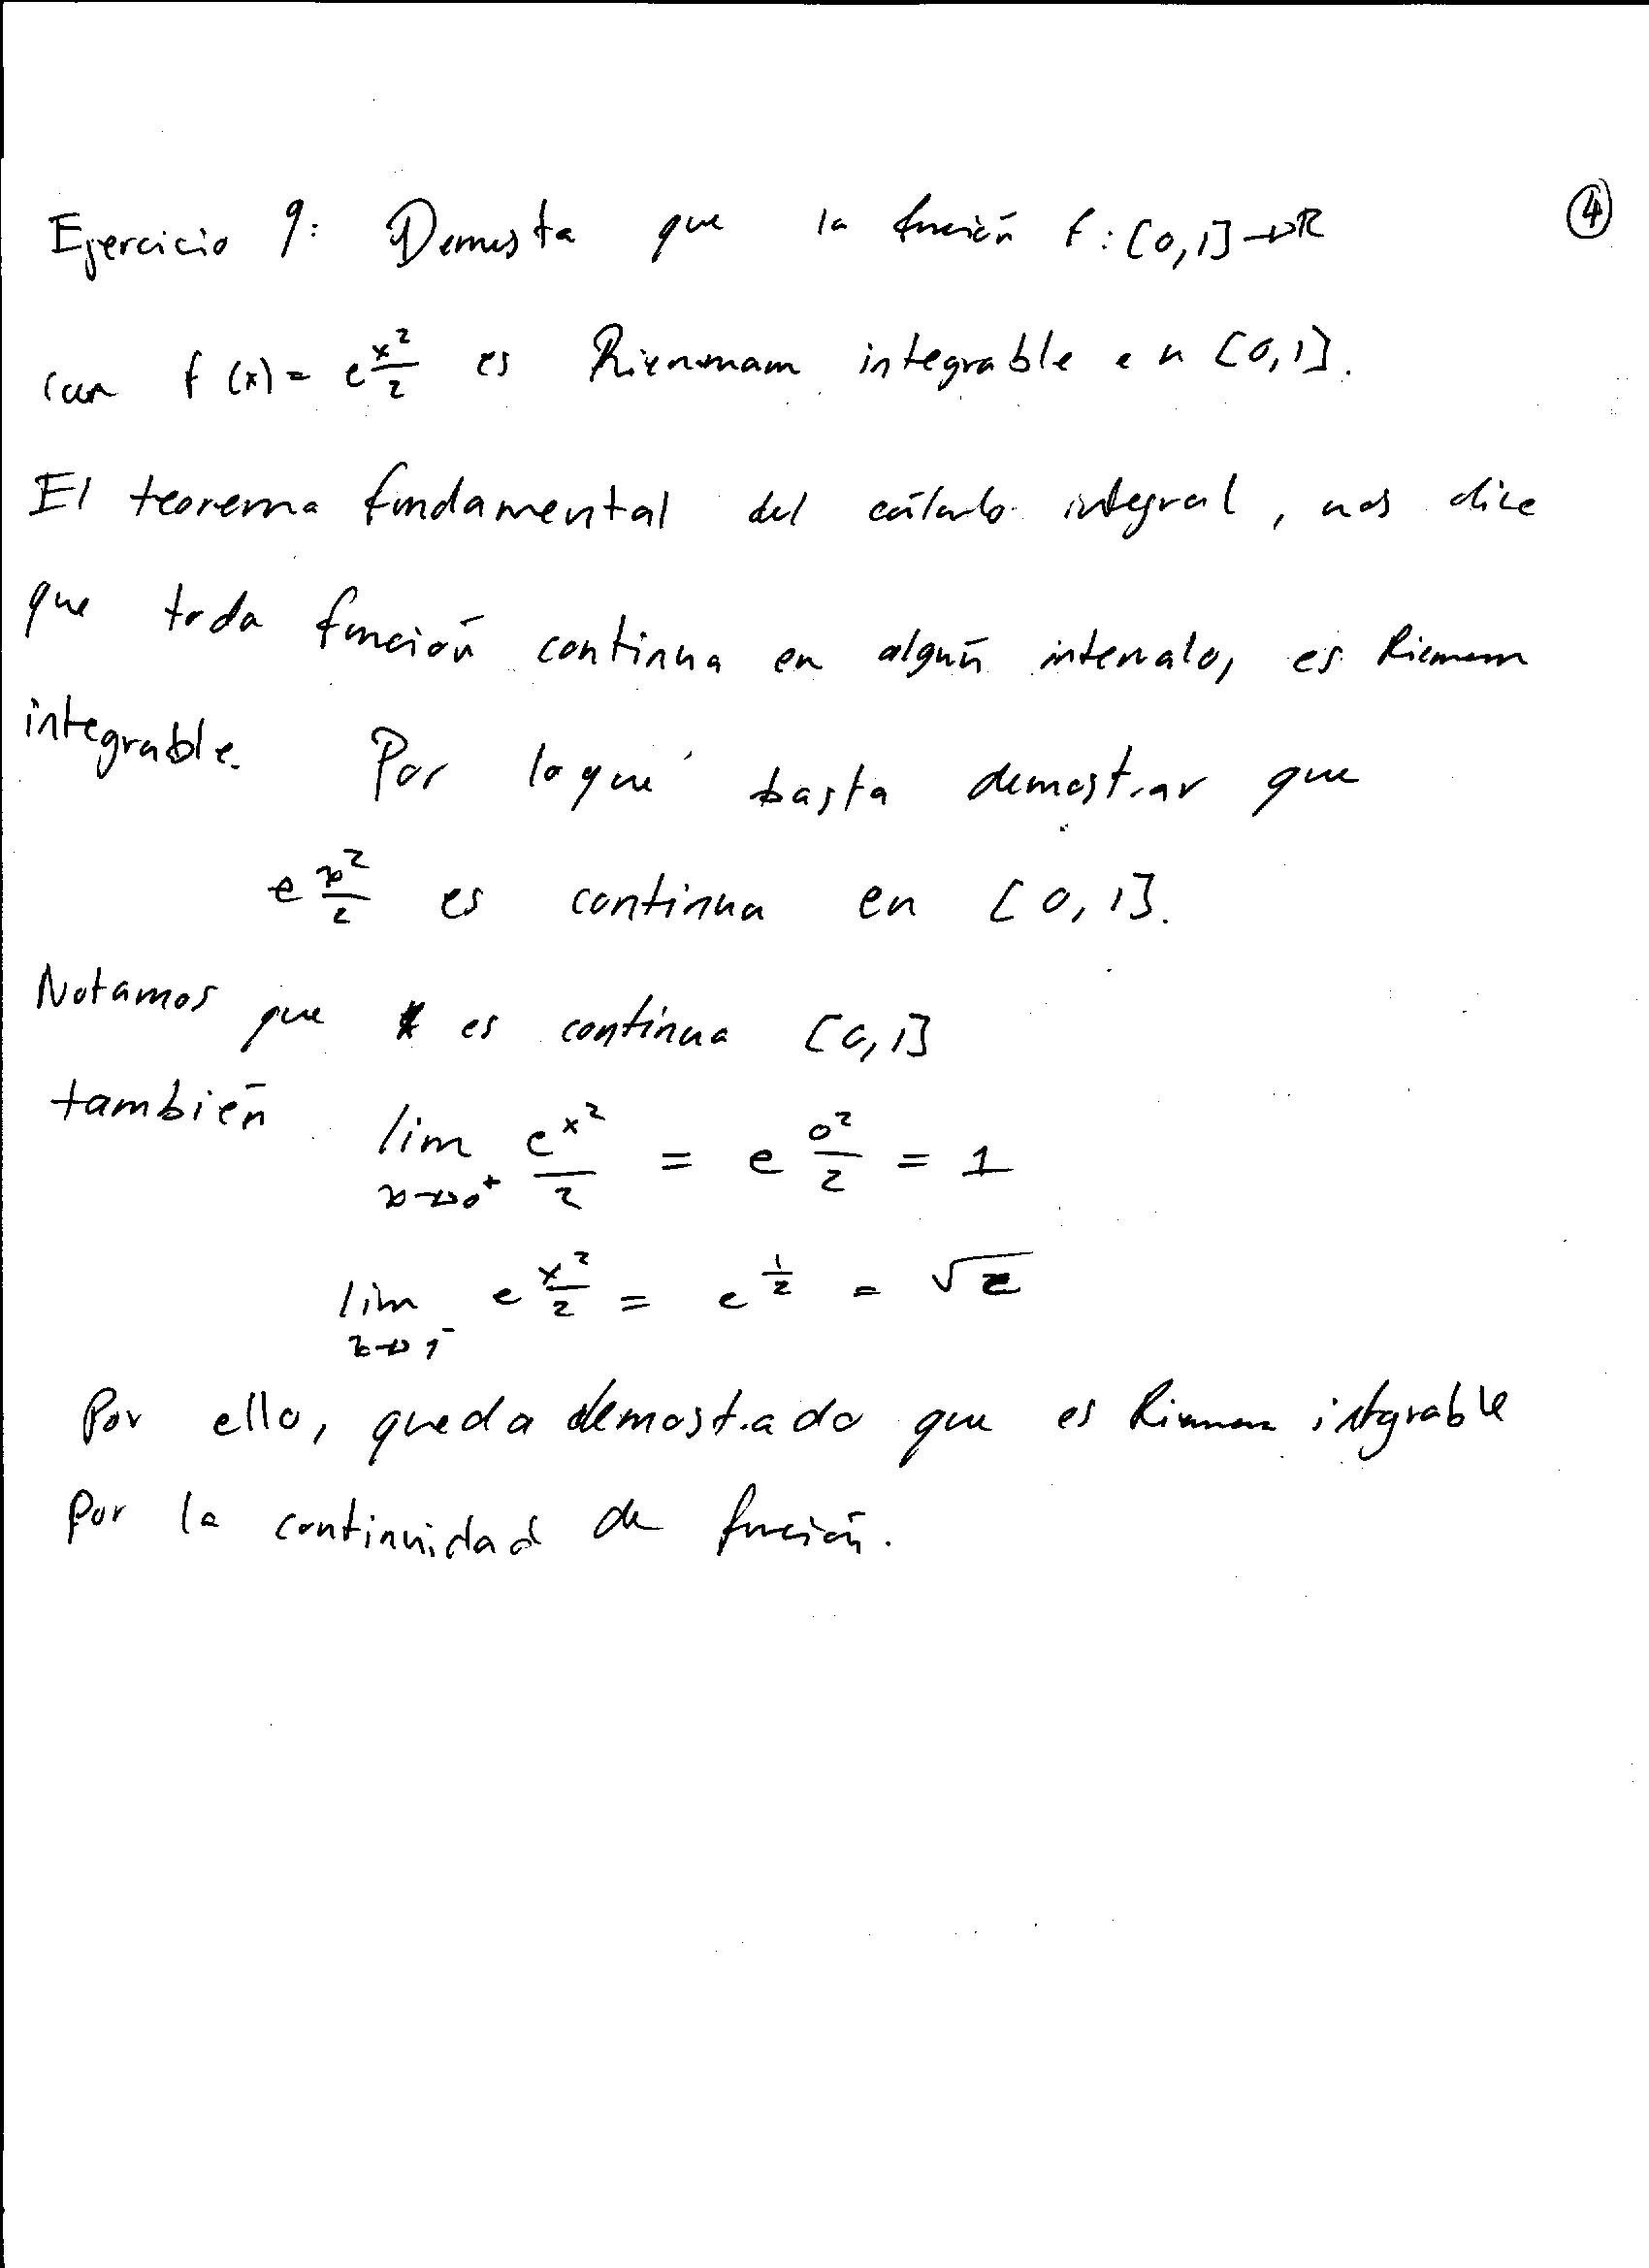 Ejercicio 9: Demusta que la función f: [0,1] → ℝ ④
con f(x) = e^{x²/2} es Rienmnam integrable en [0,1].
El teorema fundamental del cálculo integral, nos dice
que toda función continua en algún intervalo, es Riemam
integrable. Por lo que basta demostrar que
e^{x²/2} es continua en [0,1].
Notamos que es continua [0,1]
también lim_{x→0⁺} e^{x²}/2 = e^{0²/2} = 1
lim_{x→1⁻} e^{x²/2} = e^{1/2} = √e
Por ello, queda demostrado que es Riemam integrable
por la continuidad de función.